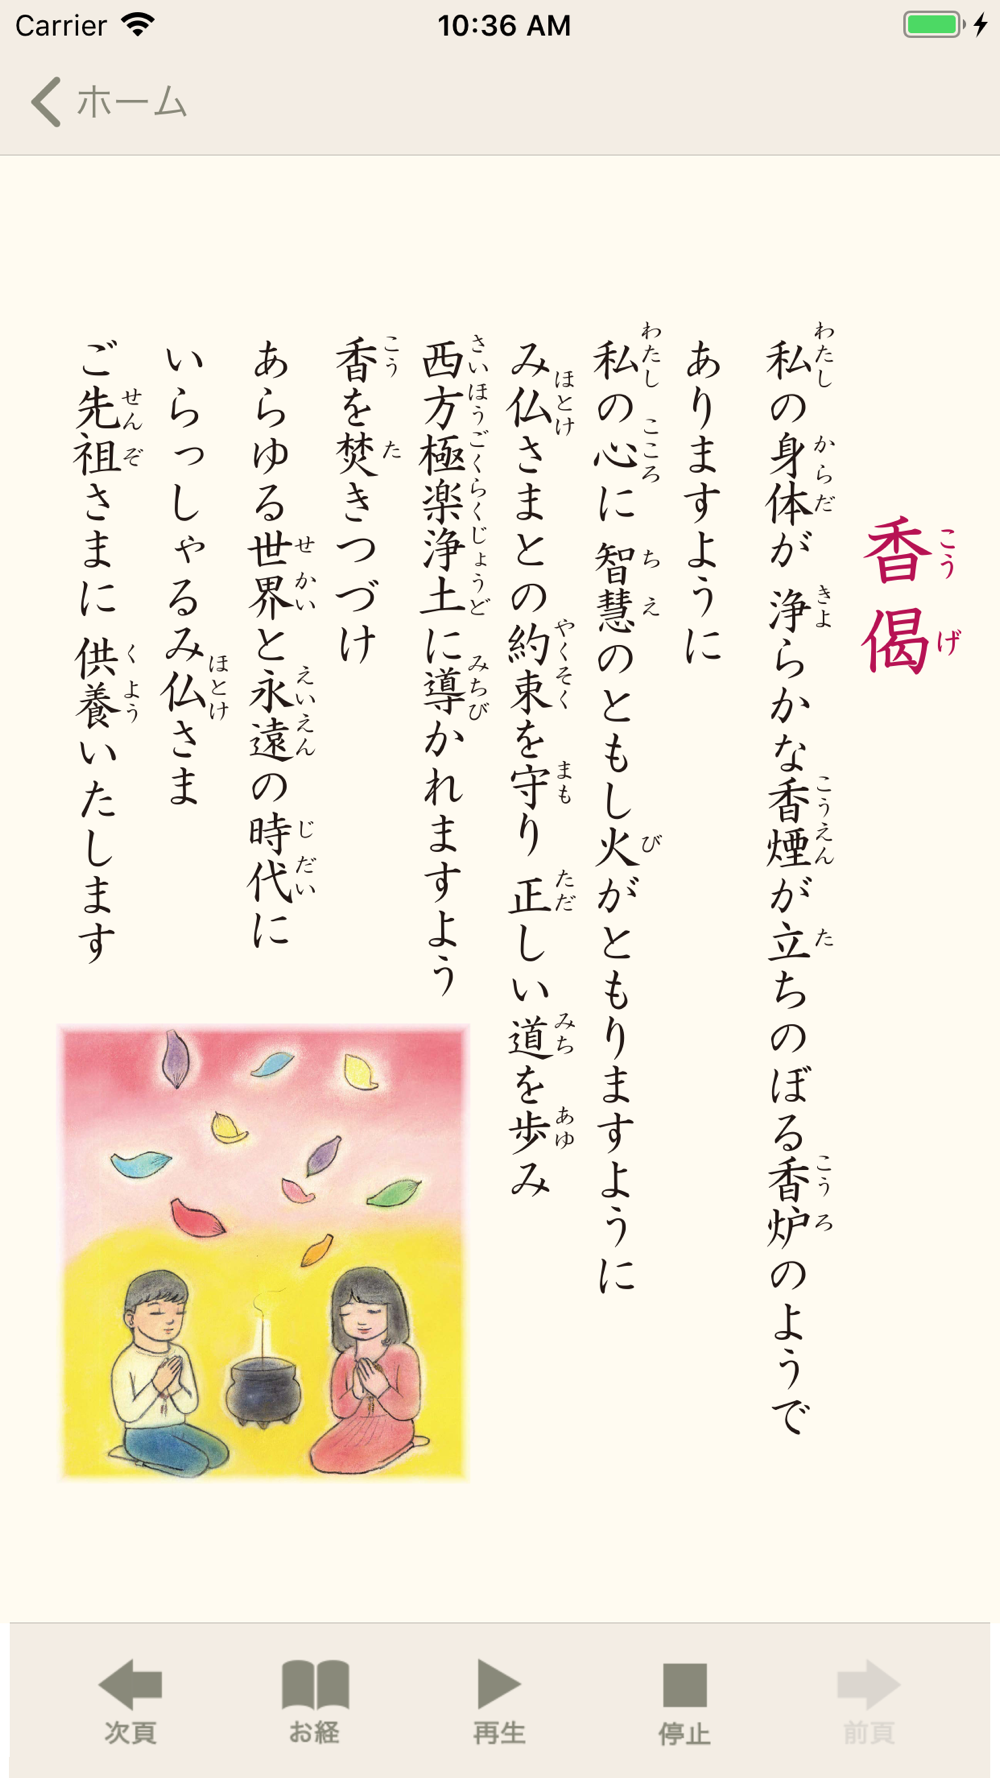 Carrier 10:36 AM
ホーム
香偈
こうげ
私の身体が 浄らかな香煙が立ちのぼる香炉のようで
わたし からだ きよ こうえん た こうろ
ありますように
私の心に 智慧のともし火がともりますように
わたし こころ ちえ び
み仏さまとの約束を守り 正しい道を歩み
ほとけ やくそく まも ただ みち あゆ
西方極楽浄土に導かれますよう
さいほうごくらくじょうど みちび
香を焚きつづけ
こう た
あらゆる世界と永遠の時代に
せかい えいえん じだい
いらっしゃるみ仏さま
ほとけ
ご先祖さまに 供養いたします
せんぞ くよう
次頁 お経 再生 停止 前頁